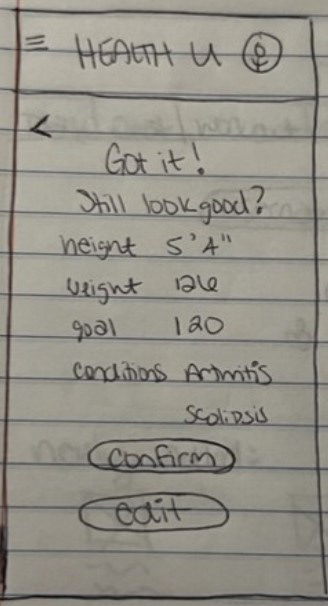 HEALTH U
<
Got it!
Still look good?
height 5'4"
weight 126
goal 120
conditions Arthritis
Scoliosis
confirm
edit